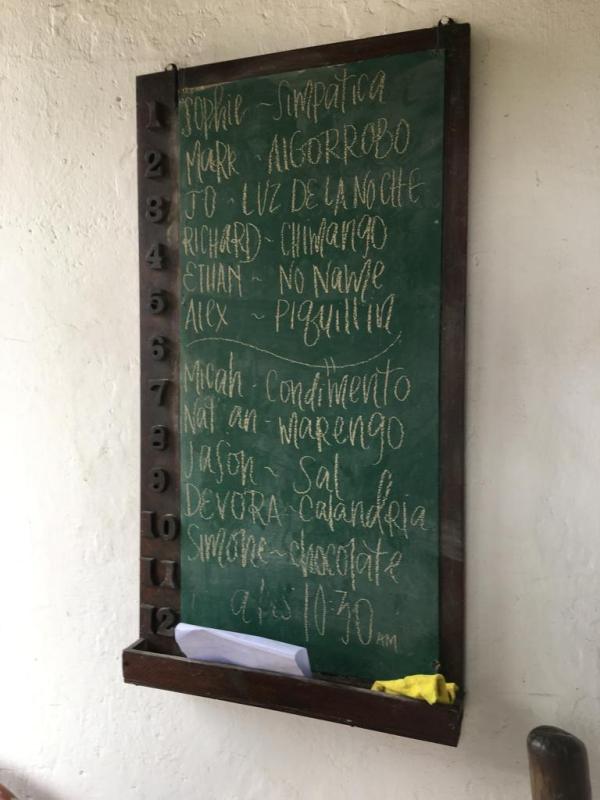 1 Sophie ~ Simpatica
2 MARK ~ AlGORROBO
3 JO ~ LUZ DE LA NOCHE
4 RICHARD ~ CHIMANGO
5 ETHAN ~ NO NAME
6 Alex ~ Piquillin
7 Micah - Condimento
8 Natan - marengo
9 Jason ~ Sal
10 DEVORA ~ Calandria
11 Simone ~ chocolate
12 10:30 AM